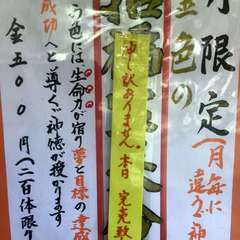 月限定（月毎に
違うご神
金色の
申し訳ありません。本日 完売致
色には生命力が宿り夢と目標の達成
成功へと導くご神徳が授かります
金五〇〇円（二百体限り